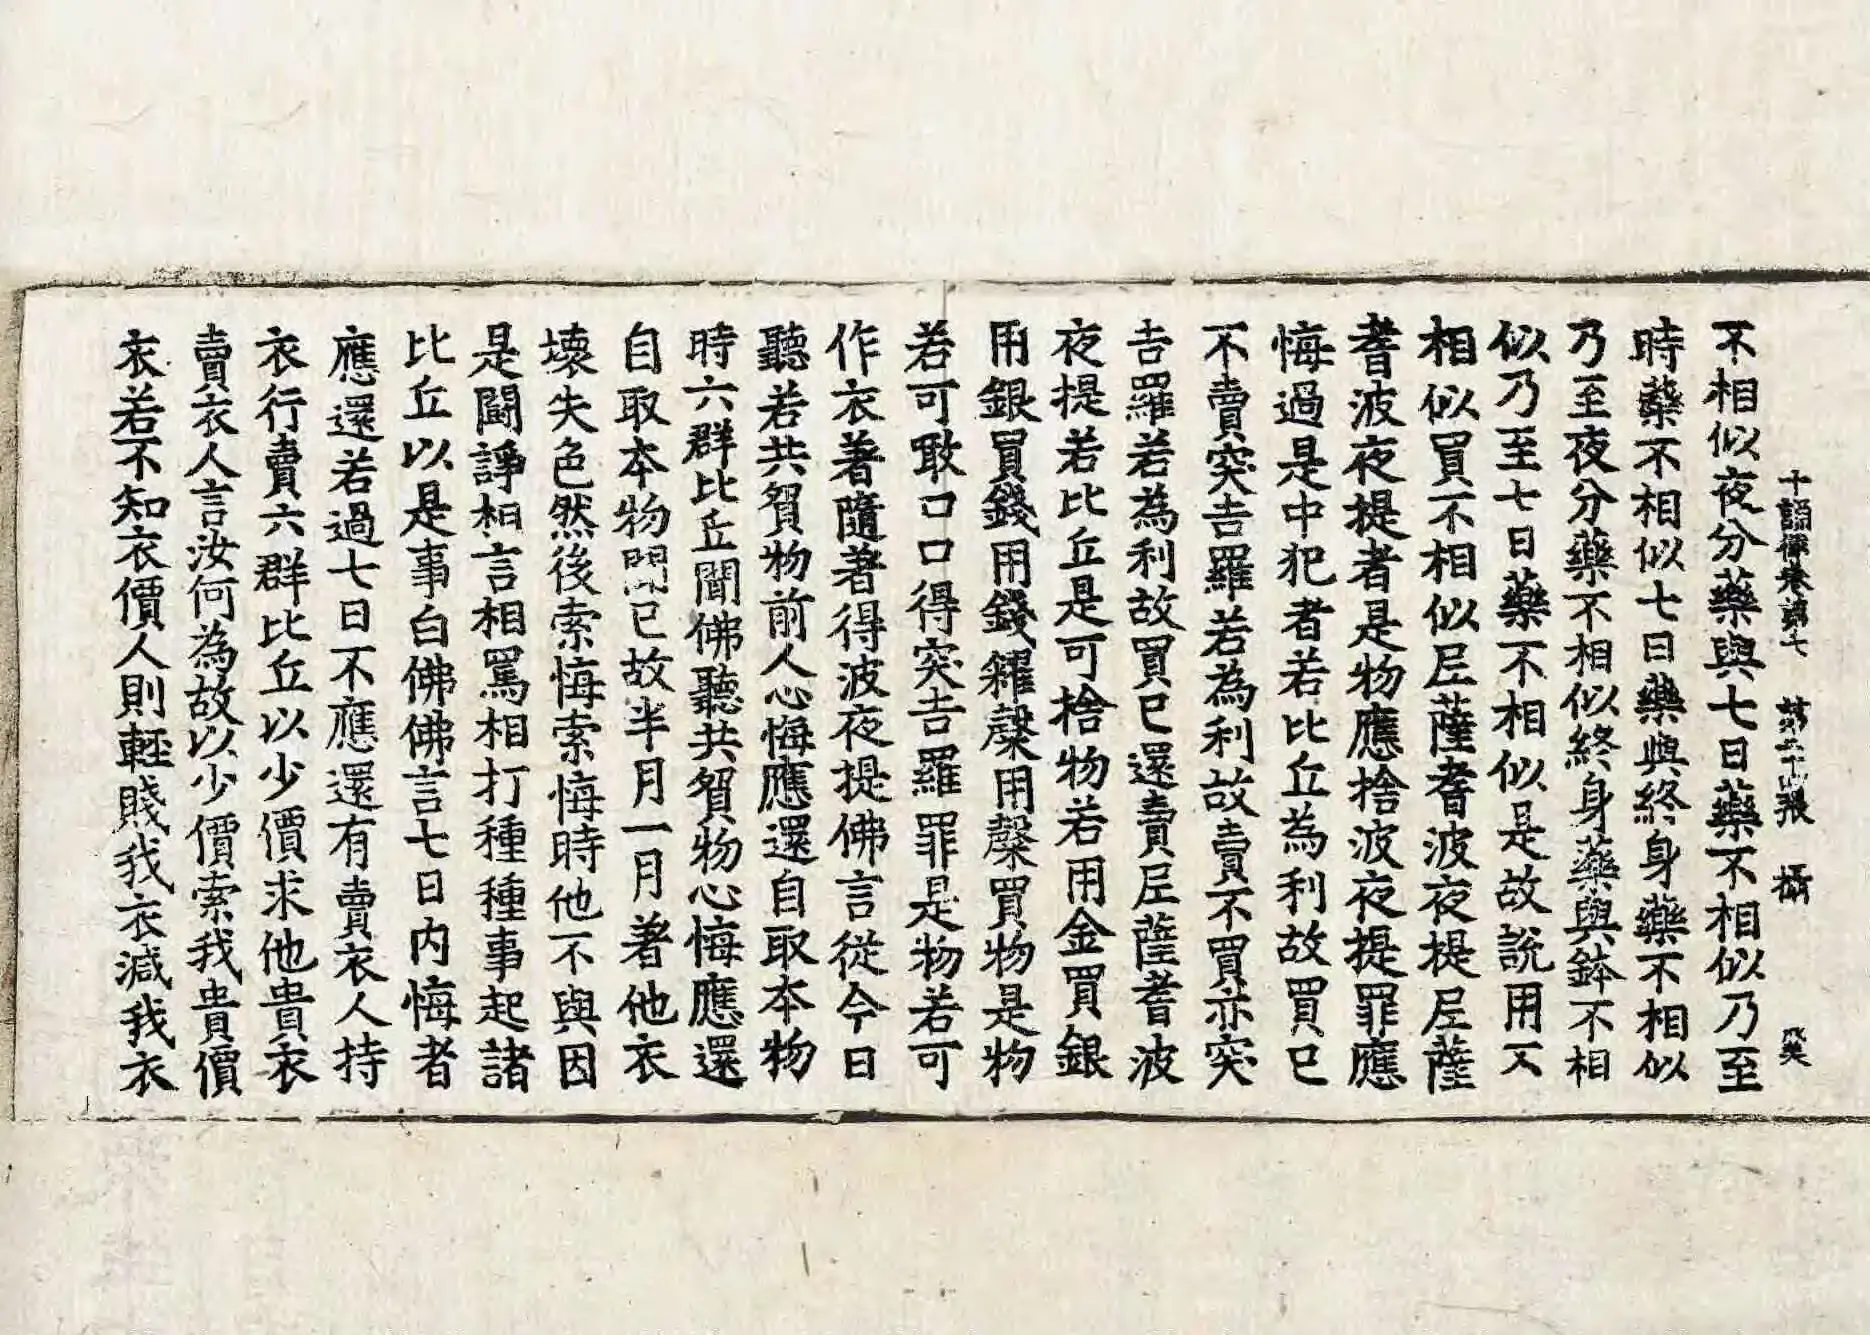 十誦律卷第七 第二十四張 攝
不相似夜分藥與七日藥不相似乃至
時藥不相似七日藥與終身藥不相似
乃至夜分藥不相似終身藥與鉢不相
似乃至七日藥不相似是故說用不
相似買不相似尼薩耆波夜提尼薩
耆波夜提者是物應捨波夜提罪應
悔過是中犯者若比丘為利故買已
不賣突吉羅若為利故賣不買亦突
吉羅若為利故買已還賣尼薩耆波
夜提若比丘是可捨物若用金買銀
用銀買錢用錢糴縠用縠買物是物
若可噉口口得突吉羅罪是物若可
作衣著隨著得波夜提佛言從今日
聽若共貿物前人心悔應還自取本物
時六群比丘聞佛聽共貿物心悔應還
自取本物聞已故半月一月著他衣
壞失色然後索悔索悔時他不與因
是鬪諍相言相罵相打種種事起諸
比丘以是事白佛佛言七日內悔者
應還若過七日不應還有賣衣人持
衣行賣六群比丘以少價求他貴衣
賣衣人言汝何為故以少價索我貴價
衣若不知衣價人則輕賤我衣減我衣